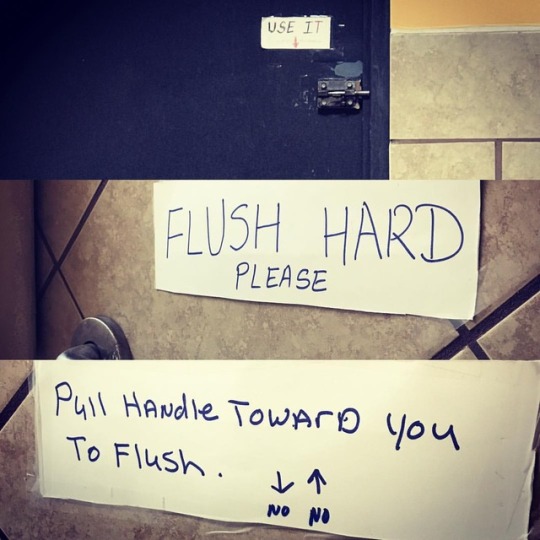 USE IT
↓
FLUSH HARD
PLEASE
Pull HANdle TOWArD you
To Flush.
↓ ↑
NO NO